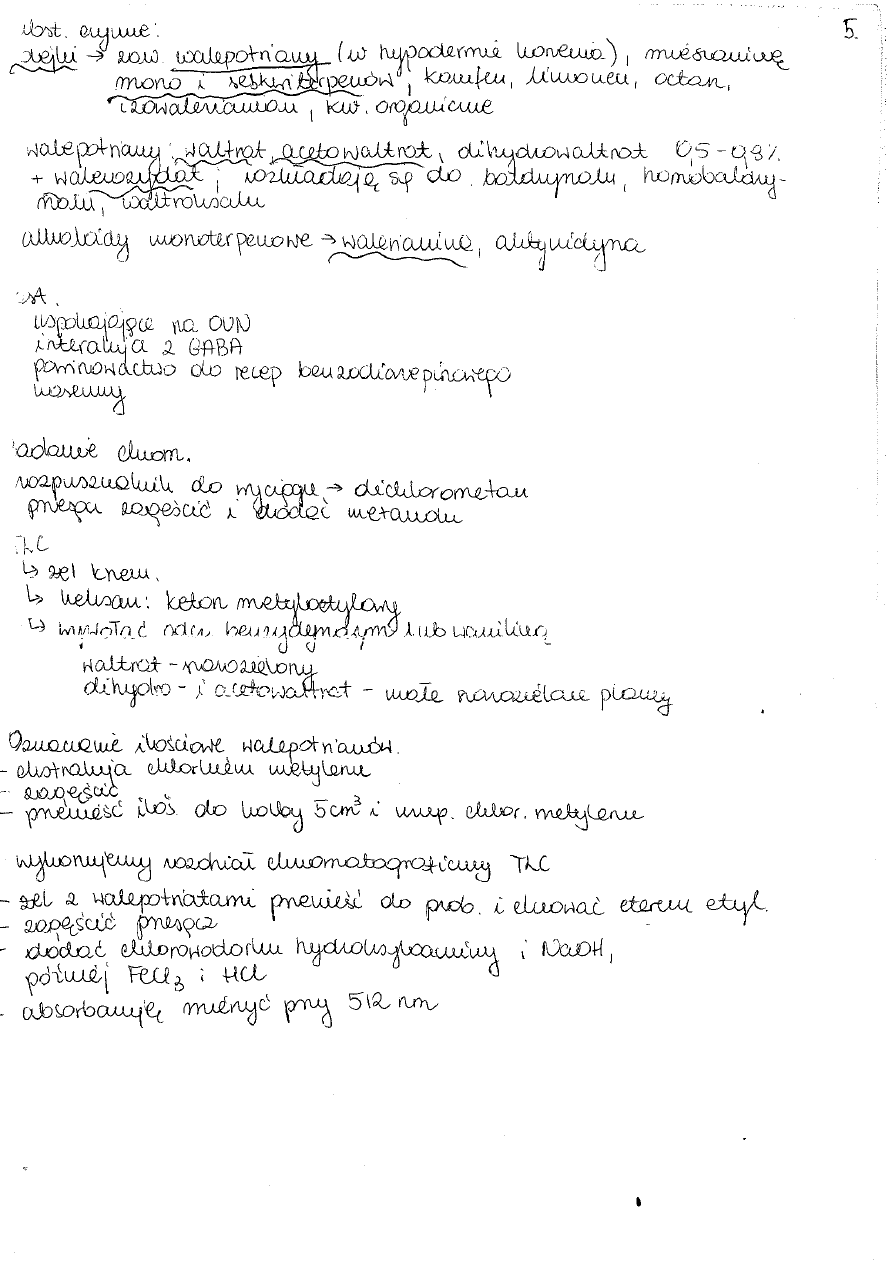 5.
bst. czynne:
olejki → zaw. walepotriany (w hypodermie korzenia), mieszaninę
mono i seskwiterpenów, kamfen, limonen, octan,
izowalerianian, kw. organiczne
walepotriany: waltrat, acetowaltrat, dihydrowaltrat 0,5-0,8%
+ walerozydat; rozkładają się do baldrynalu, homobaldry-
nalu, waltroksalu
alkaloidy monoterpenowe → walerianina, aktynidyna
uspokajające na OUN
interakcja z GABA
powinowactwo do recep benzodiazepinowego
nasenny
adanie chrom.
rozpuszczalnik do wyciągu → dichlorometan
przesącz zagęścić i dodać metanolu
TLC
↳ żel krzem.
↳ heksan: keton metyloetylowy
↳ wywołać odcz. benzydynowym lub waniliną
waltrat - niebieskozielony
dihydro- i acetowaltrat - małe
Oznaczanie ilościowe walepotrianów.
- ekstrakcja chlorkiem metylenu
- zagęścić
- przenieść iloś. do kolby 5cm³ i uzup. chlor. metylenu
wykonujemy rozdział chromatograficzny TLC
- żel z walepotriatami przenieść do prob. i eluować eterem etyl.
- zagęścić przesącz
- dodać chlorowodorku hydroksyloaminy i NaOH,
później FeCl₃ i HCl
- absorbancję mierzyć przy 512 nm